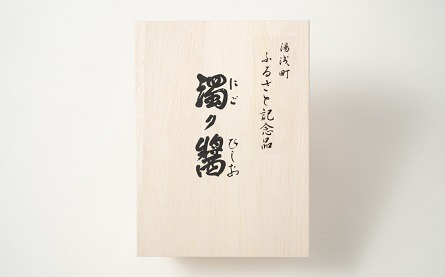 湯浅町
ふるさと記念品
濁り醬
にご
ひしお